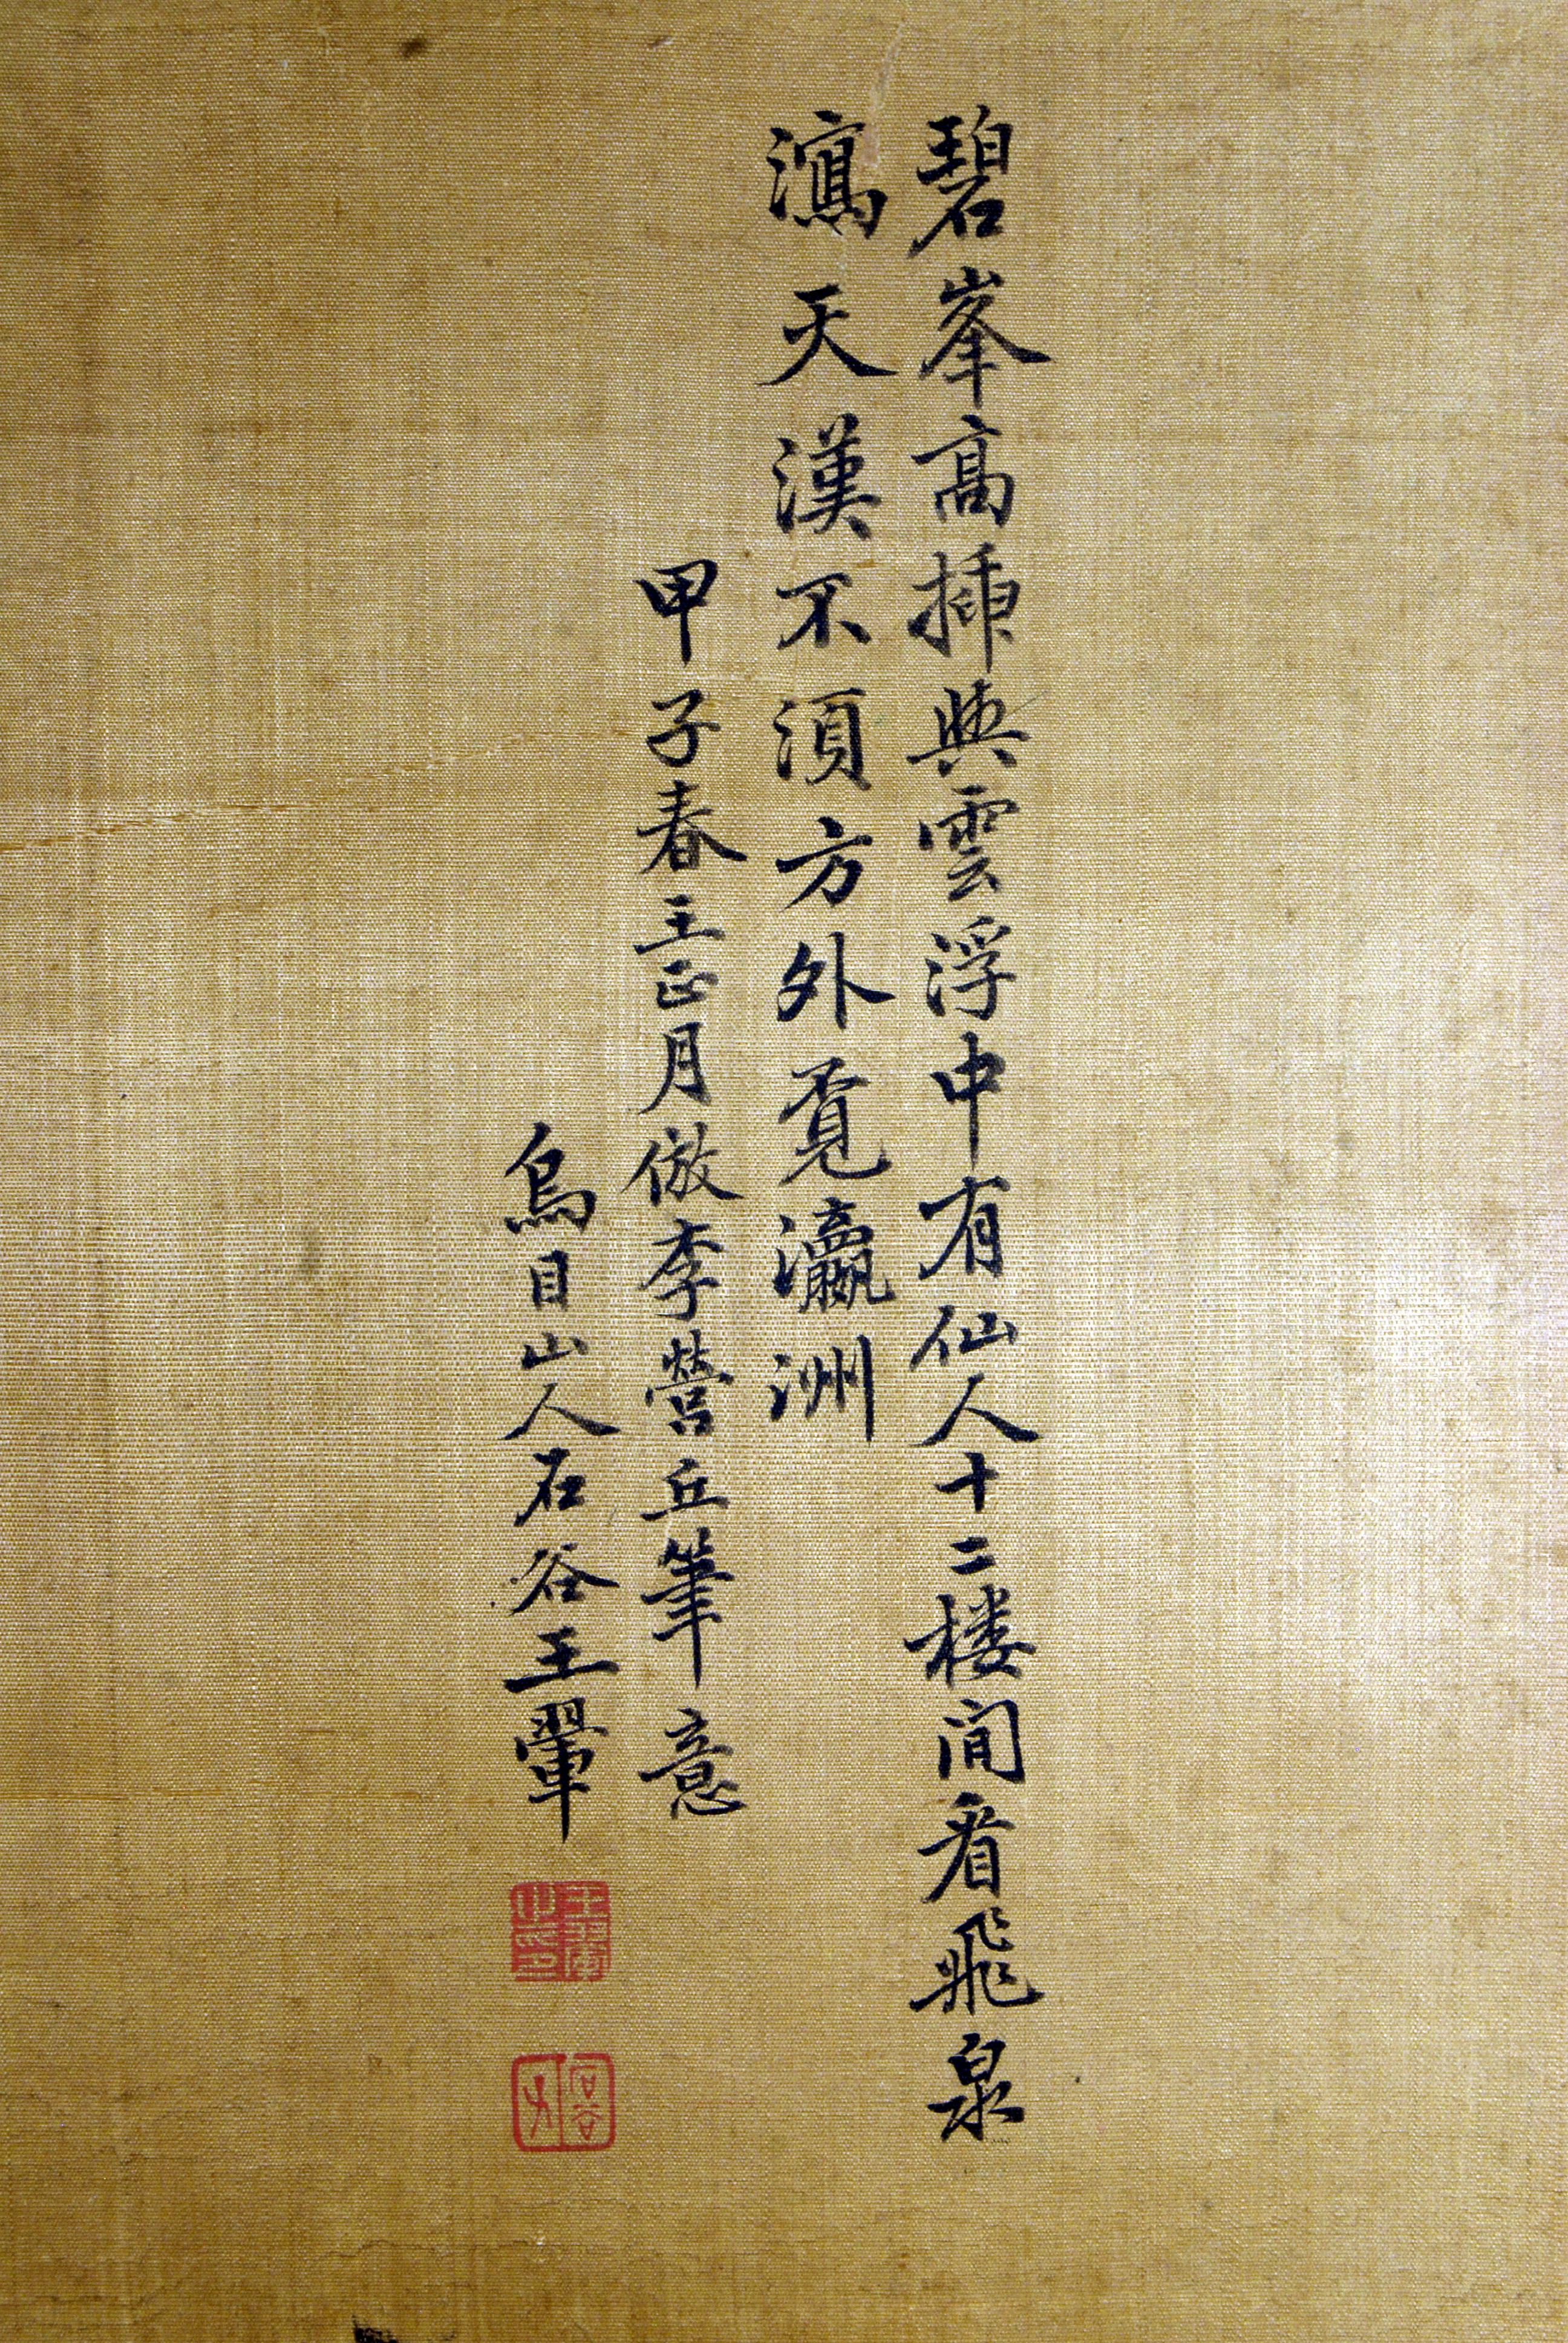 碧峯高插與雲浮中有仙人十二楼間看飛泉
瀉天漢不須方外覓瀛洲
甲子春王正月倣李營丘筆意
烏目山人石谷王翬
王翬之印
石谷子